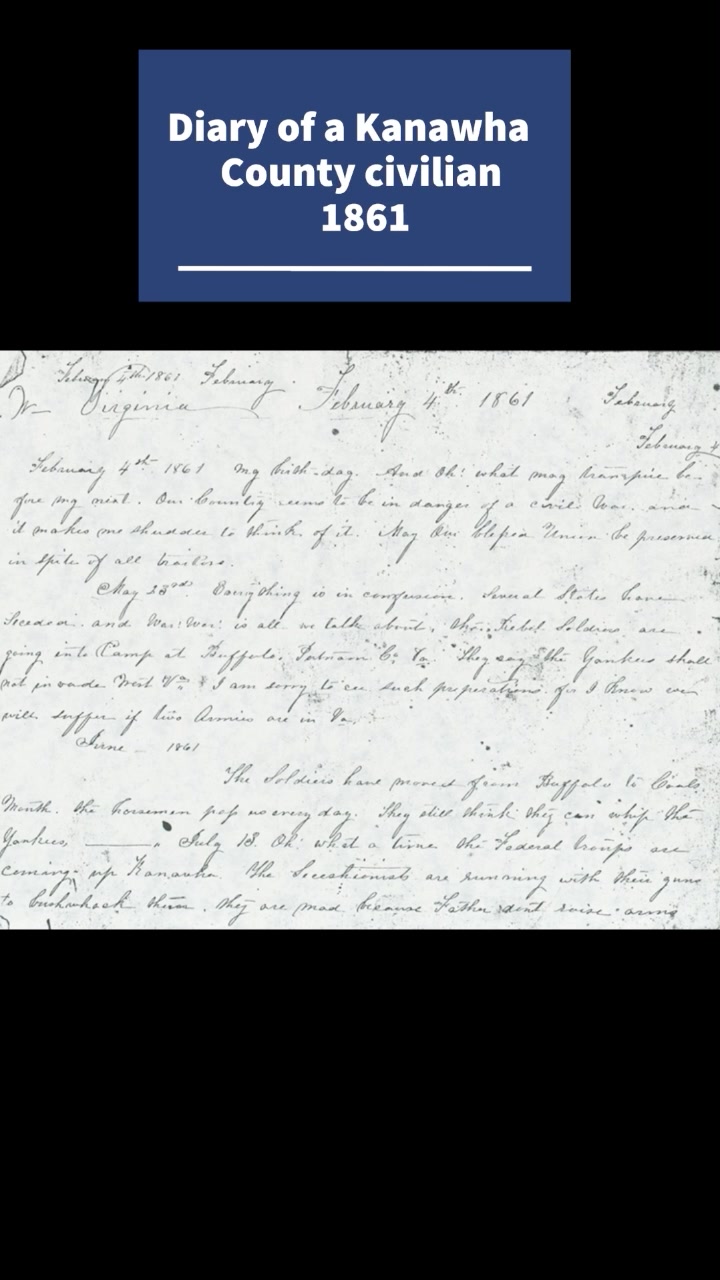 Diary of a Kanawha
County civilian
1861
February 4th 1861 February
W Virginia February 4th 1861 February
February 4
February 4th 1861 My birth-day. And Oh! what may transpire be-
fore my next. Our Country seems to be in danger of a civil War. and
it makes me shudder to think of it. May Our blessed Union be preserved
in spite of all traitors.
May 23rd Everything is in confusion. Several States have
Seceded. and War! War! is all we talk about. The Rebel Soldiers are
going into Camp at Buffalo, Putnam C, Va. They say the Yankees shall
not invade West Va I am sorry to see such preparations for I know we
will suffer if two Armies are in Va.
June - 1861
The Soldiers have moved from Buffalo to Coals
Mouth. the horsemen pass us every day. They still think they can whip the
Yankees July 13. Oh! what a time the Federal troops are
coming up Kanawha. The Secestionists are running with their guns
to bushwhack them. they are mad because Father dont raise arms